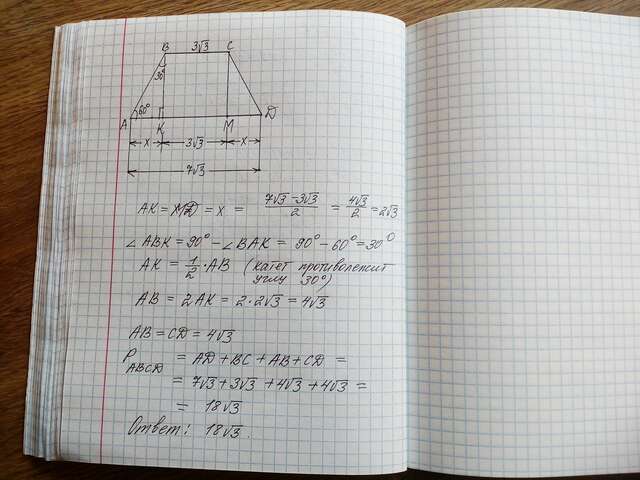 B 3√3 C
30°
60°
A K M D
x 3√3 x
7√3
AK = MD = x = (7√3 − 3√3)/2 = 4√3/2 = 2√3
∠ABK = 90° − ∠BAK = 90° − 60° = 30°
AK = 1/2 · AB (катет противолежит
углу 30°)
AB = 2AK = 2 · 2√3 = 4√3
AB = CD = 4√3
P ABCD = AD + BC + AB + CD =
= 7√3 + 3√3 + 4√3 + 4√3 =
= 18√3
Ответ: 18√3.